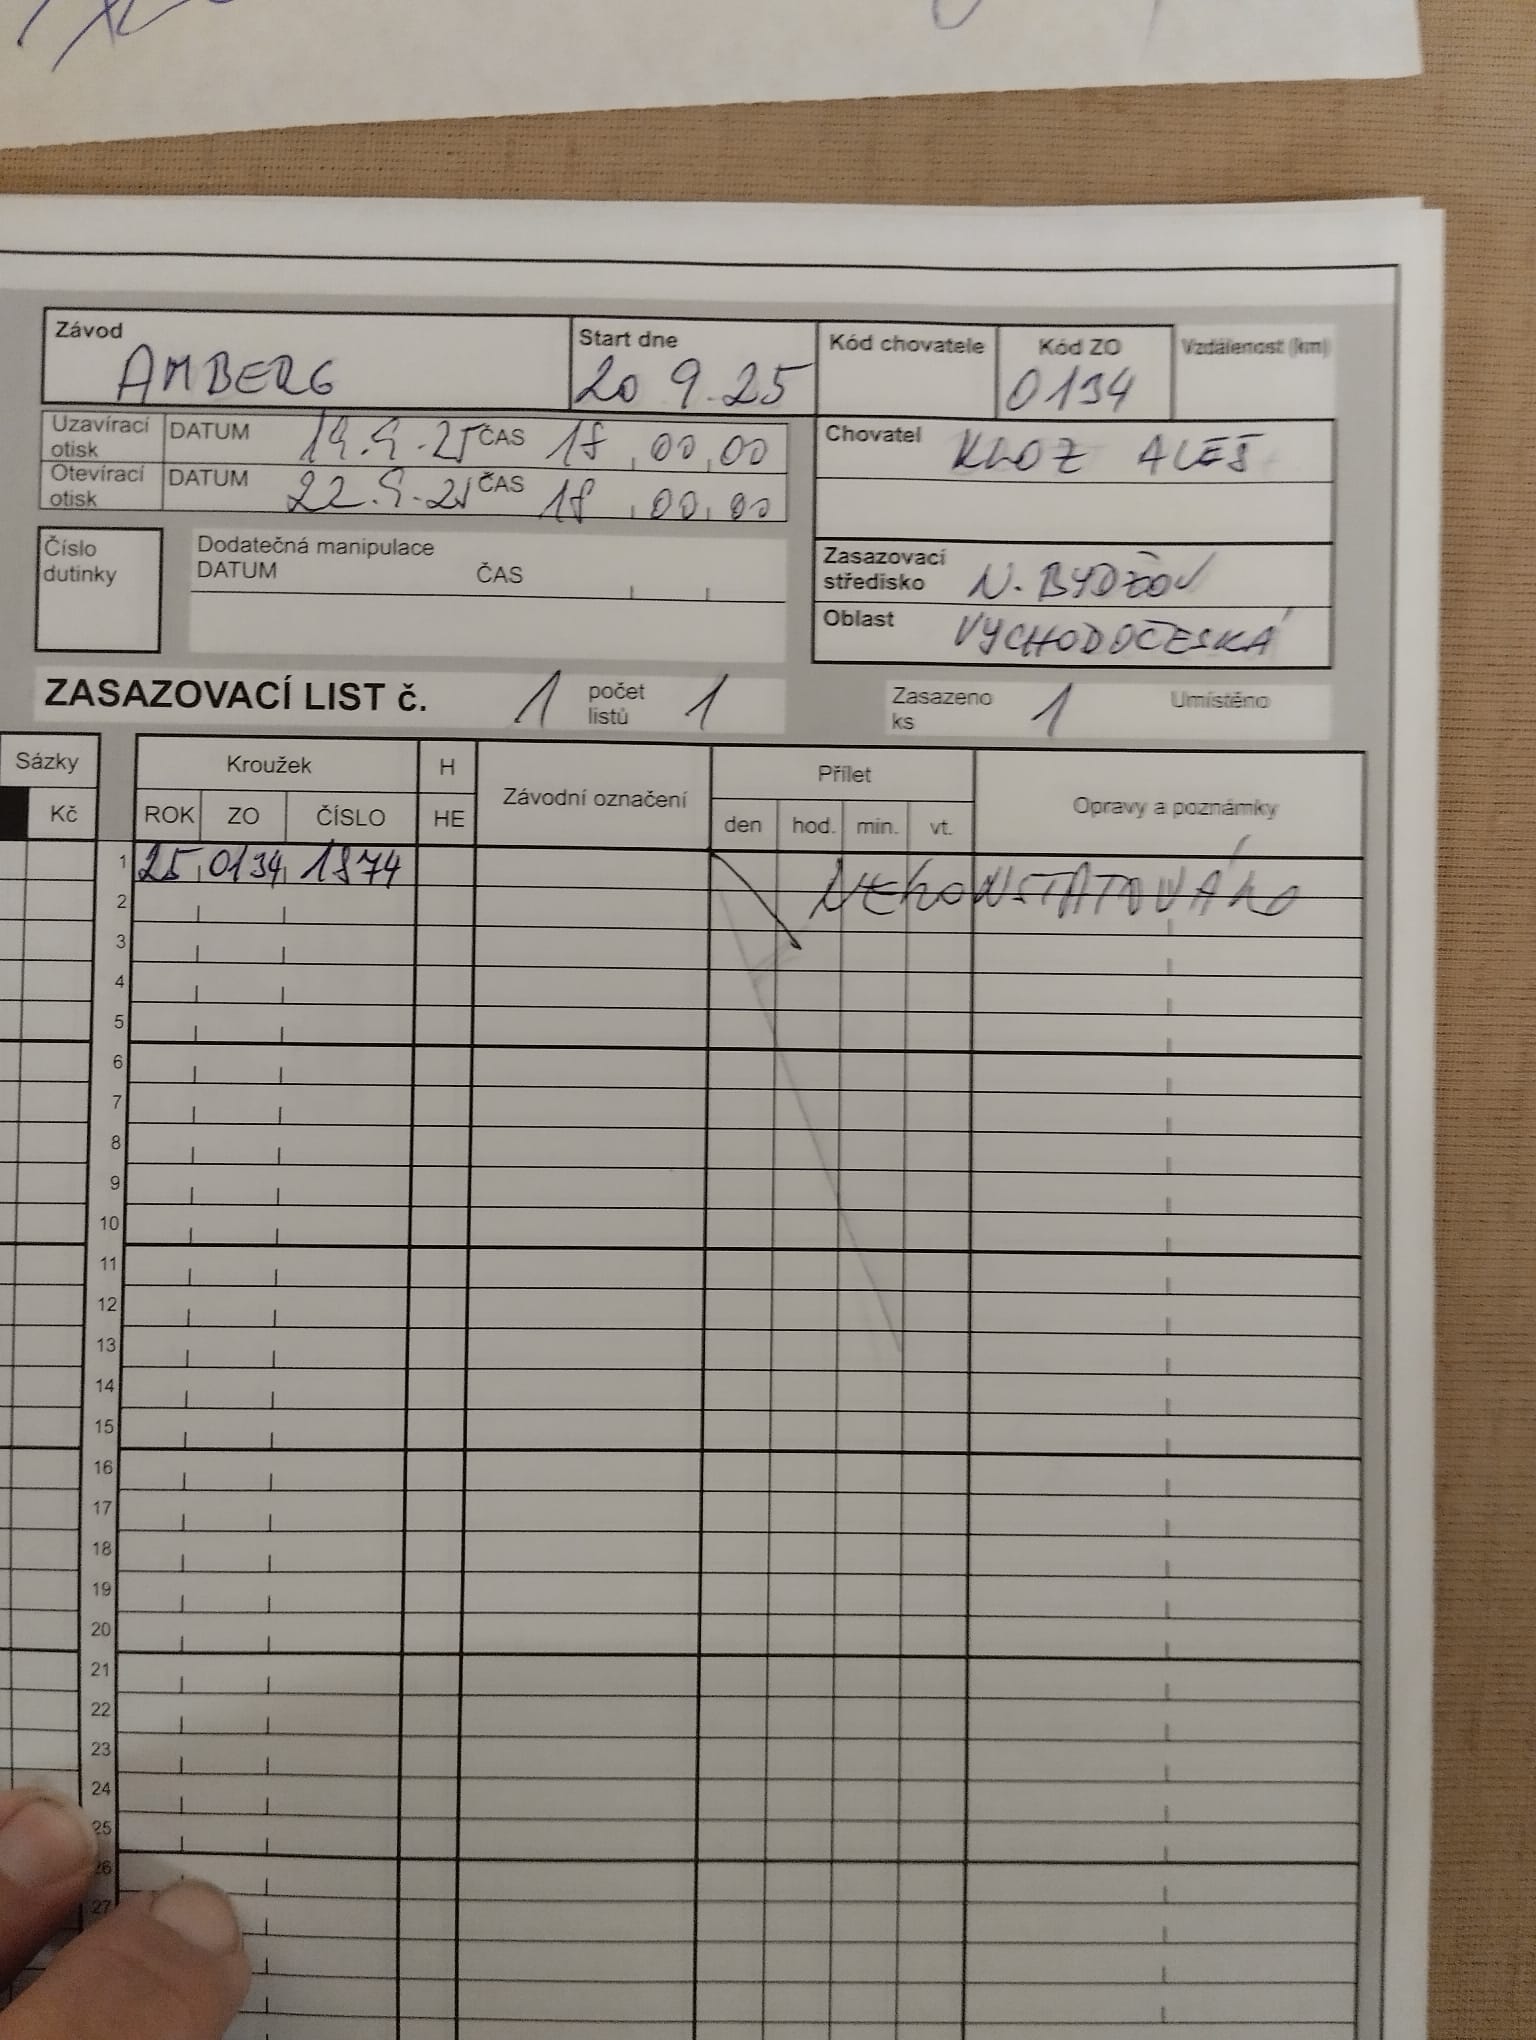 Závod Start dne Kód chovatele Kód ZO Vzdálenost (km)
AMBERG 20 9.25 0134
Uzavírací otisk DATUM 19.9.25 ČAS 18,00,00
Otevírací otisk DATUM 22.9.25 ČAS 18,00,00
Chovatel KLOZ ALEŠ
Číslo dutinky
Dodatečná manipulace
DATUM ČAS
Zasazovací středisko N. BYDŽOV
Oblast VÝCHODOČESKÁ
ZASAZOVACÍ LIST č. 1 počet listů 1 Zasazeno ks 1 Umístěno
Sázky Kroužek H Závodní označení Přílet Opravy a poznámky
Kč ROK ZO ČÍSLO HE den hod. min. vt.
1 25 0134 1874 NEKONSTATOVÁNO
2
3
4
5
6
7
8
9
10
11
12
13
14
15
16
17
18
19
20
21
22
23
24
25
26
27